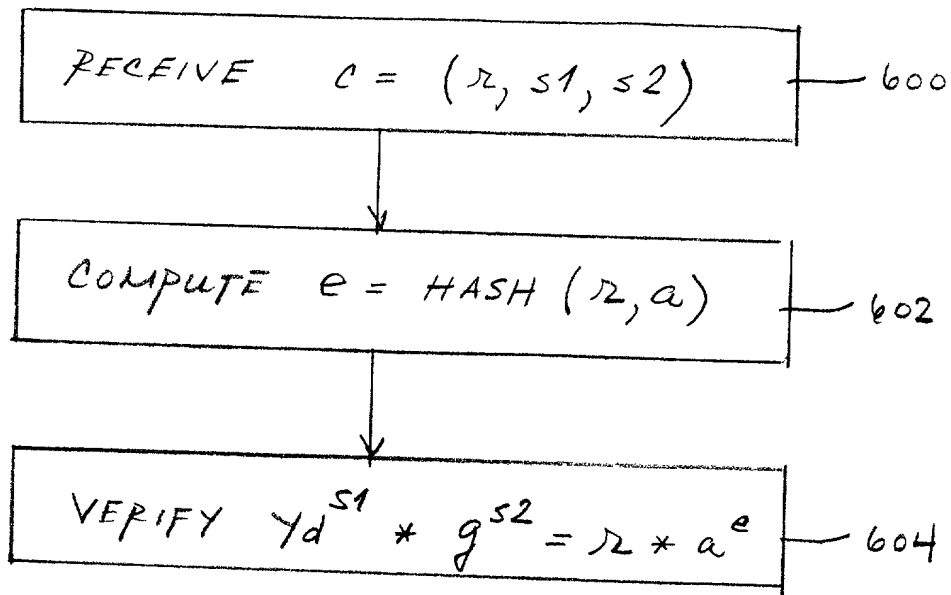 RECEIVE C = (r, s1, s2)
600
COMPUTE e = HASH (r, a)
602
VERIFY yd^s1 * g^s2 = r * a^e
604